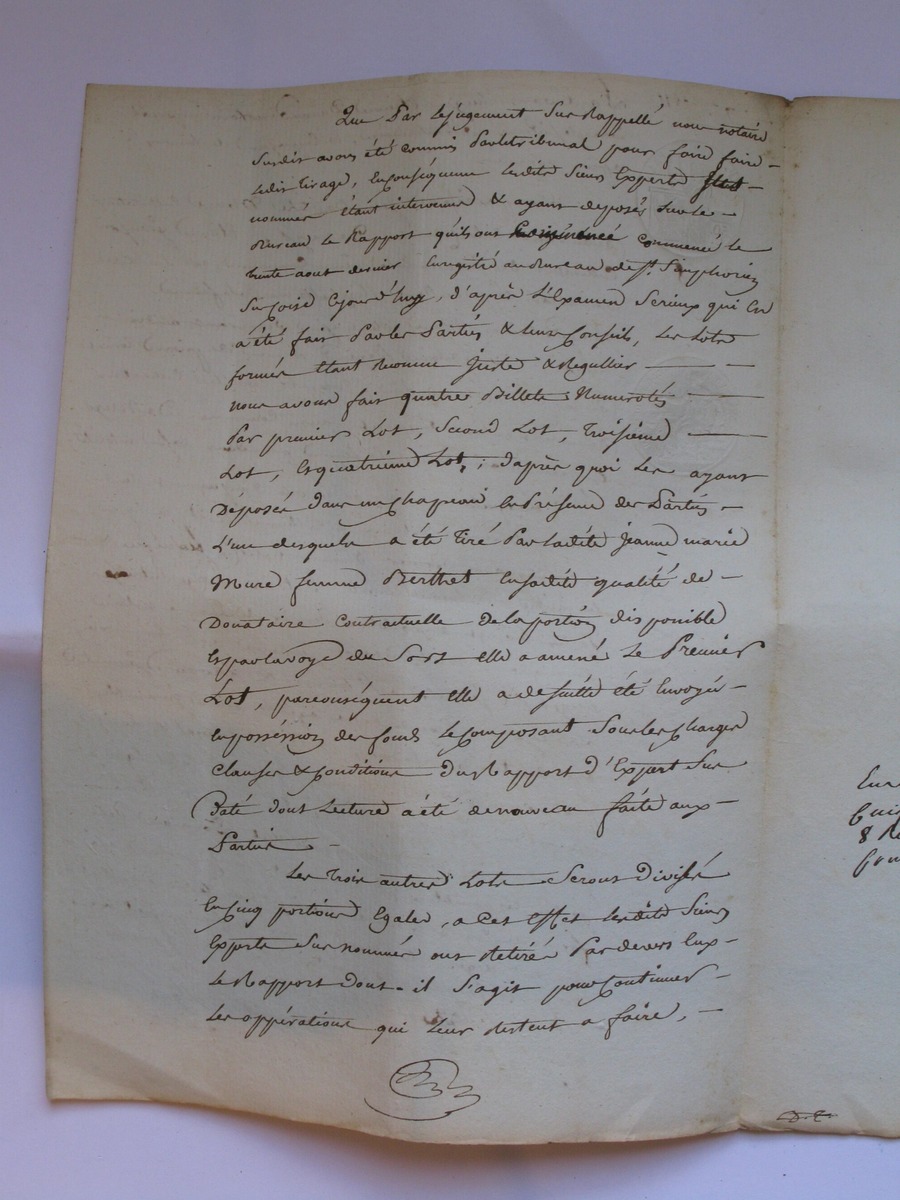 Que Par lejugement Sus Rappellé nous notaire
Susdit avons été commis Parletribunal pour faire faire
Ledit tirage, Enconséquence lesdits Sieurs Experts
nommés étant intervenus & ayant déposés sur le
Bureau le Rapport qu'ils ont commencé le
trente aout dernier Enregistré au Bureau de St. Simphorien
Sur Coise Cejourd'huy, d'après L'Examen Serieux qui En
a été fait Par les Partiés & leur Conseils, les Lots
formés étant Reconnu juste & Regullier
nous avons fait quatre Billets Numerotés
Par premier Lot, Second Lot, Troisième
Lot, Et quatrième Lot, ; d'après quoi Les ayant
Déposés dans un Chapeau En Présence des Partiés
L'un desquels a été Tiré Par ladite Jeanne marie
Mure femme Berthet En sadite qualité de
Donataire Contractuelle de la portion disponible
Et par la voye du Sort elle a amené Le Premier
Lot, par conséquent elle a desuitte été Envoyée
En posséssion des fonds le Composant Sous les Charges
Clauses & Conditions du Rapport d'Expert Sus
Daté dont Lecture a été de nouveau faite aux
Parties
Les Trois autres Lots Serons Divisé
En Cinq portions Egales, a Cet Effet lesdits Sieurs
Experts Sus nommés ont Retirés Par devers Eux
Le Rapport dont il S'agit pour Continuer
Les oppérations qui Leur Restent a faire,